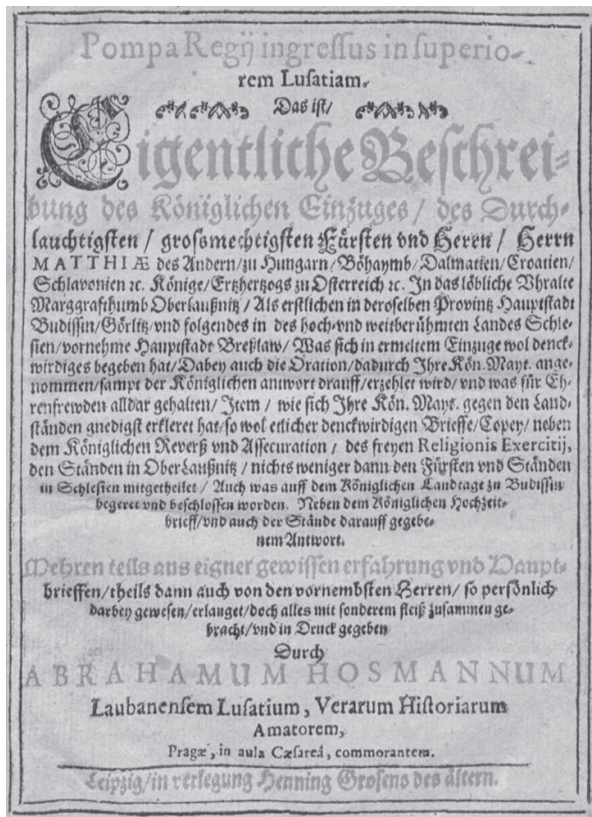 Pompa Regij ingressus in superio-
rem Lusatiam.
Das ist/
Eigentliche Beschrei-
bung des Königlichen Einzuges / des Durch-
lauchtigsten / grossmechtigsten Fürsten vnd Herrn / Herrn
MATTHIÆ des Andern/zu Hungarn/Böhaymb/Dalmatien/Croatien/
Schlavonien ꝛc. Könige/Ertzhertzogs zu Osterreich ꝛc. In das löbliche Vhralte
Marggraffthumb Oberlaußnitz / Als erstlichen in deroselben Provintz Hauptstadt
Budissin/Görlitz vnd folgendes in des hoch-vnd weitberühmten Landes Schle-
sien/vornehme Hauptstadt Breßlaw/Was sich in ermeltem Einzuge wol denck-
wirdiges begeben hat/Dabey auch die Oration/dadurch Ihre Kön. Mayt. ange-
nommen/sampt der Königlichen antwort drauff/erzehlet wird/vnd was für Eh-
renfrewden alldar gehalten/Item / wie sich Ihre Kön. Mayt. gegen den Land-
ständen gnedigst erkleret hat/so wol etlicher denckwirdigen Brieffe/Copey/ neben
dem Königlichen Reverß vnd Assecuration / des freyen Religionis Exercitij,
den Ständen in OberLaußnitz / nichts weniger dann den Fürsten vnd Ständen
in Schlesien mitgetheilet / Auch was auff dem Königlichen Landtage zu Budissin
begeret vnd beschlossen worden. Neben dem Königlichen Hochzeit-
brieff/vnd auch der Stände darauff gegebe-
nem Antwort.
Mehren teils aus eigner gewissen erfahrung vnd Haupt-
brieffen/theils dann auch von den vornembsten Herren/ so persönlich
darbey gewesen/erlanget/doch alles mit sonderem fleiß zusammen ge-
bracht/vnd in Druck gegeben
Durch
ABRAHAMUM HOSMANNUM
Laubanensem Lusatium, Verarum Historiarum
Amatorem,
Pragæ, in aula Cæsareâ, commorantem.
Leipzig/in verlegung Henning Grosens des ältern.